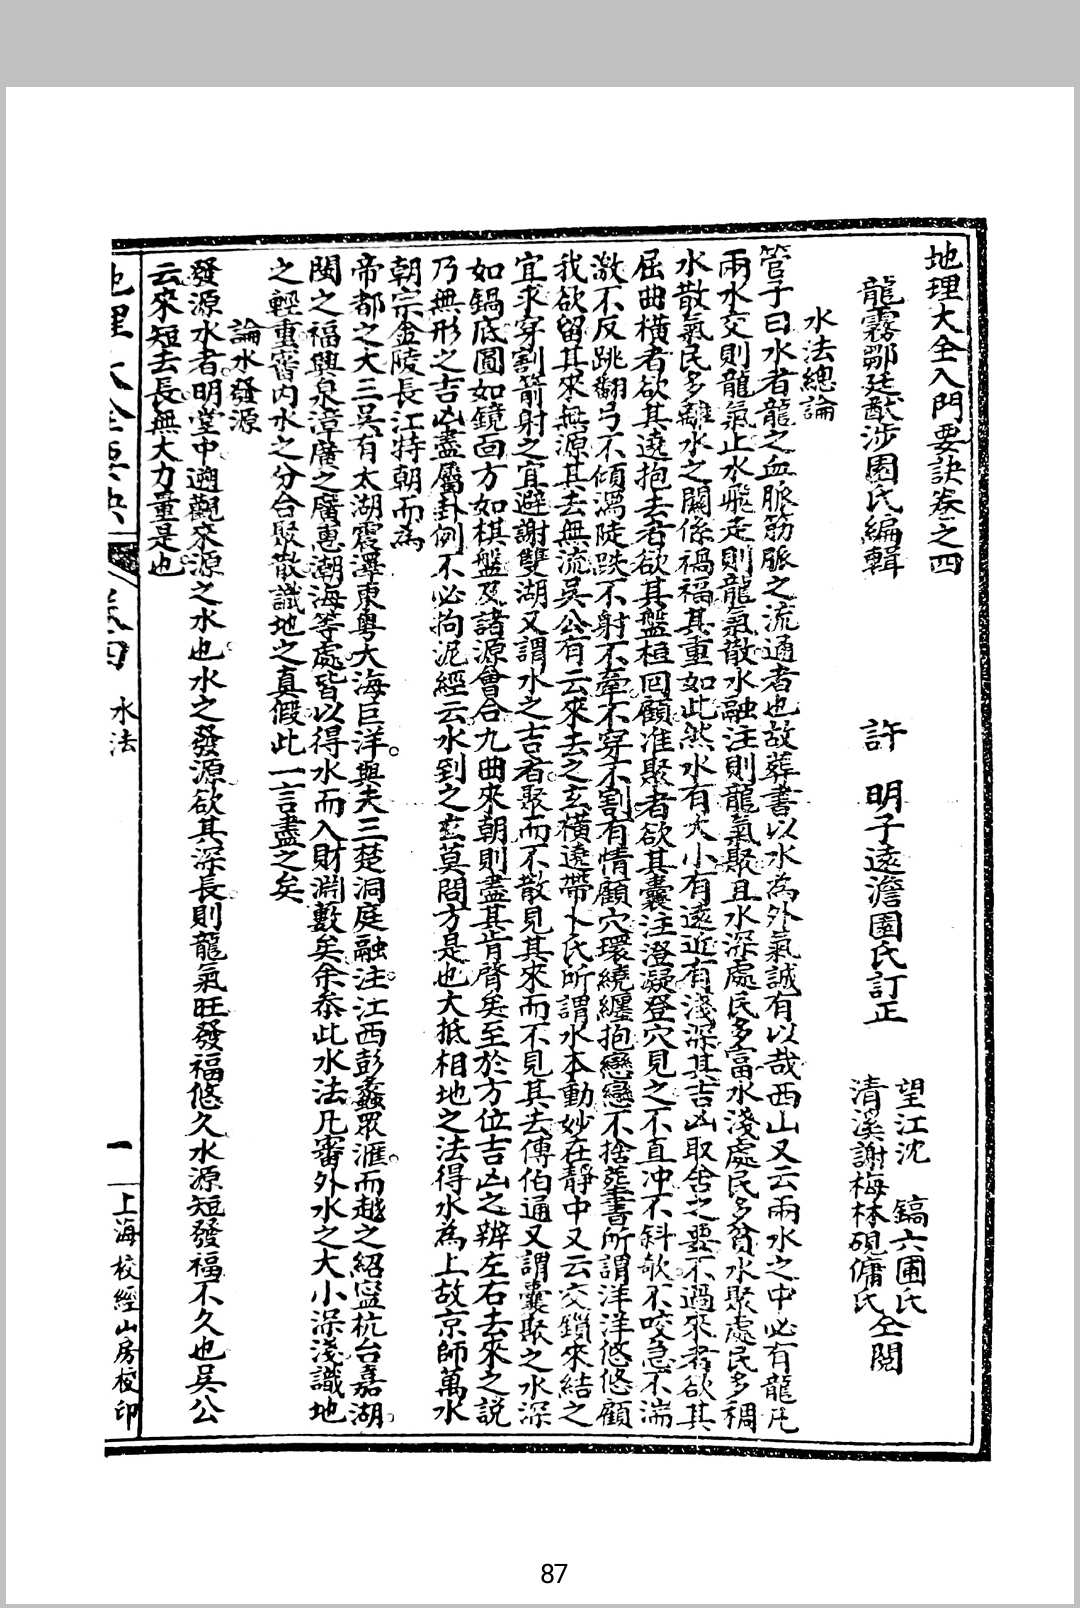 地理大全入門要訣卷之四
龍霧鄒廷猷涉園氏編輯
許　明子遠澹園氏訂正
望江沈　鎬六圃氏
清溪謝梅林硯傭氏
仝閱
水法總論
管子曰水者龍之血脈筋脈之流通者也故葬書以水為外氣誠有以哉西山又云兩水之中必有龍凡
兩水交則龍氣止水飛走則龍氣散水融注則龍氣聚且水深處民多富水淺處民多貧水聚處民多稠
水散氣民多離水之關係禍福其重如此然水有大小有遠近有淺深其吉凶取舍之要不過來者欲其
屈曲橫者欲其遶抱去者欲其盤桓回顧准聚者欲其囊注澄凝登穴見之不直冲不斜欹不咬急不湍
激不反跳翻弓不傾瀉陡跌不射不牽不穿不割有情顧穴環繞纏抱戀戀不捨葬書所謂洋洋悠悠顧
我欲留其來無源其去無流吳公有云來去之玄橫遶帶卜氏所謂水本動妙在靜中又云交鎖來結之
宜求穿割箭射之宜避謝雙湖又謂水之吉者聚而不散見其來而不見其去傅伯通又謂囊聚之水深
如鍋底圓如鏡面方如棋盤及諸源會合九曲來朝則盡其肯膂矣至於方位吉凶之辨左右去來之説
乃無形之吉凶盡屬卦例不必拘泥經云水到之玄莫問方是也大抵相地之法得水為上故京師萬水
朝宗金陵長江特朝而為
帝都之大三吳有太湖震澤東粵大海巨洋與夫三楚洞庭融注江西彭蠡眾滙而越之紹寧杭台嘉湖
閩之福興泉漳廣之廣惠潮海等處皆以得水而入財淵藪矣余叅此水法凡審外水之大小深淺識地
之輕重審內水之分合聚散識地之真假此一言盡之矣
論水發源
發源水者明堂中遡觀來源之水也水之發源欲其深長則龍氣旺發福悠久水源短發福不久也吳公
云來短去長無大力量是也
地理大全要訣　卷四　水法　一　上海校經山房校印
87